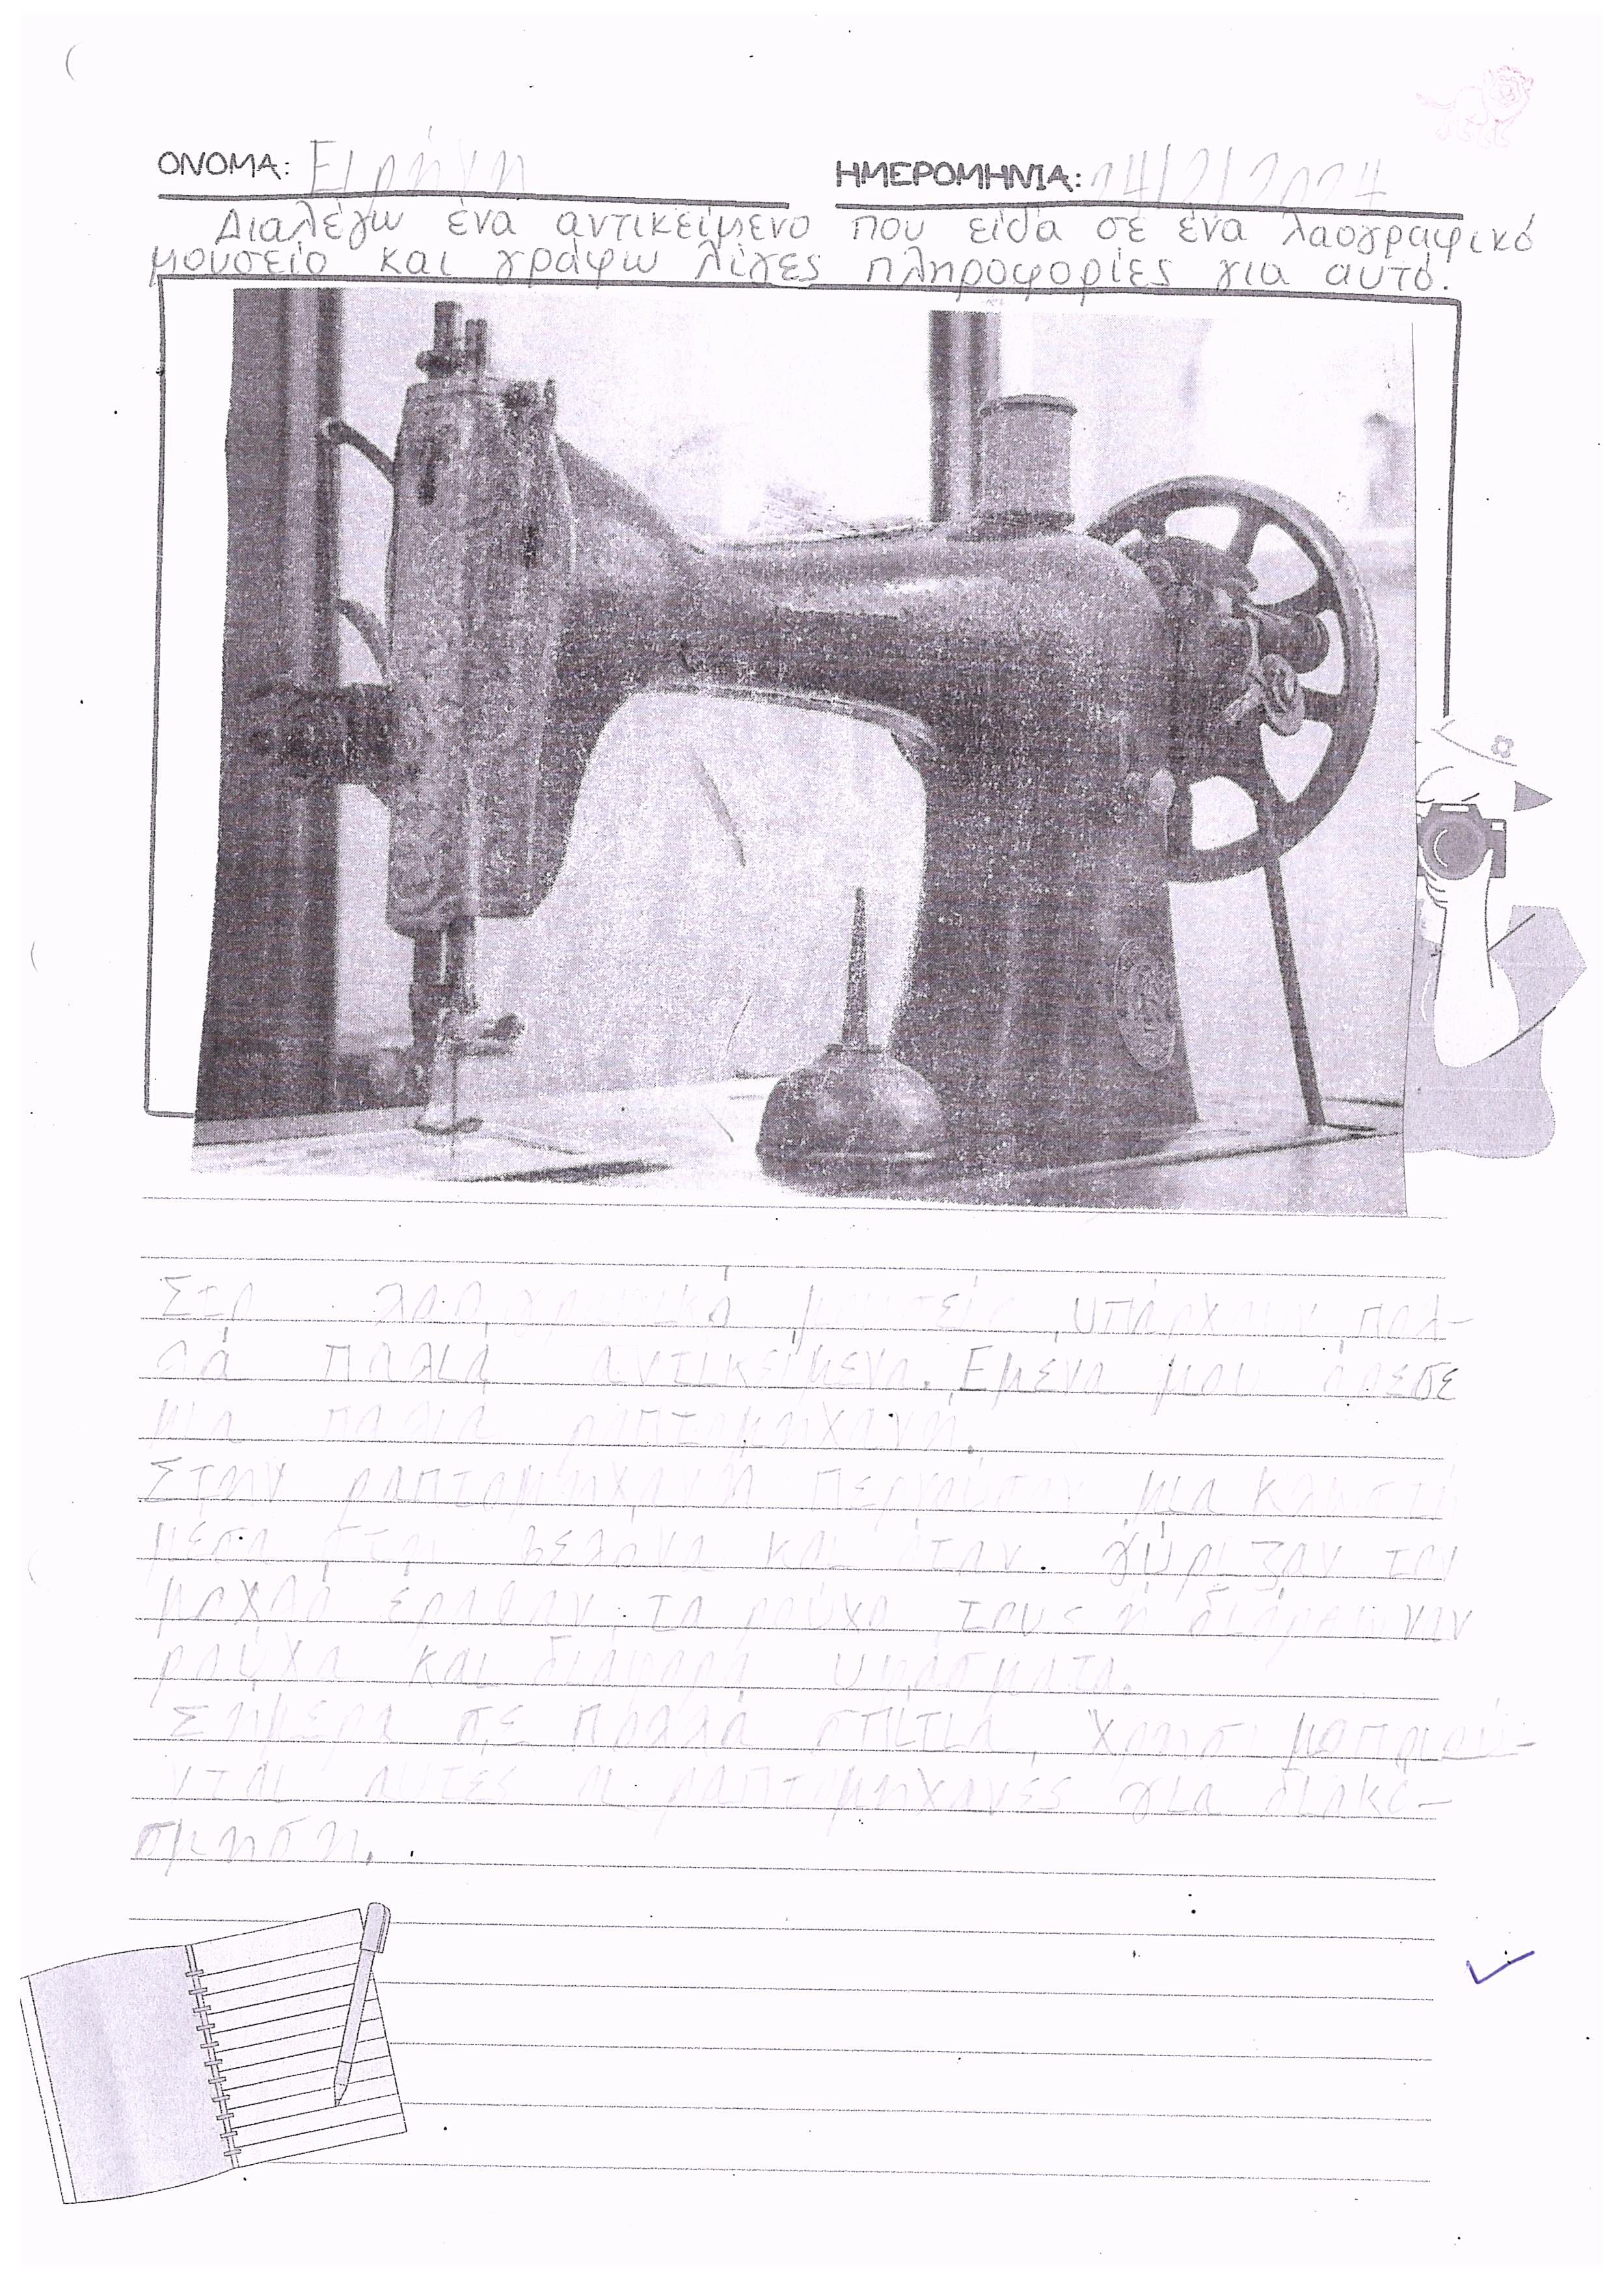 ΟΝΟΜΑ: Ειρήνη ΗΜΕΡΟΜΗΝΙΑ: 14/2/2024
Διαλέγω ένα αντικείμενο που είδα σε ένα λαογραφικό
μουσείο και γράφω λίγες πληροφορίες για αυτό.
Στα λαογραφικά μουσεία υπάρχουν πολ-
λά παλιά αντικείμενα. Εμένα μου άρεσε
μια παλιά ραπτομηχανή.
Στην ραπτομηχανή περνούσαν μια κλωστή
μέσα στη βελόνα και όταν γύριζαν τον
μοχλό έραβαν τα ρούχα τους ή διόρθωναν
ρούχα και διάφορα υφάσματα.
Σήμερα σε πολλά σπίτια χρησιμοποιού-
νται αυτές οι ραπτομηχανές για διακό-
σμηση.